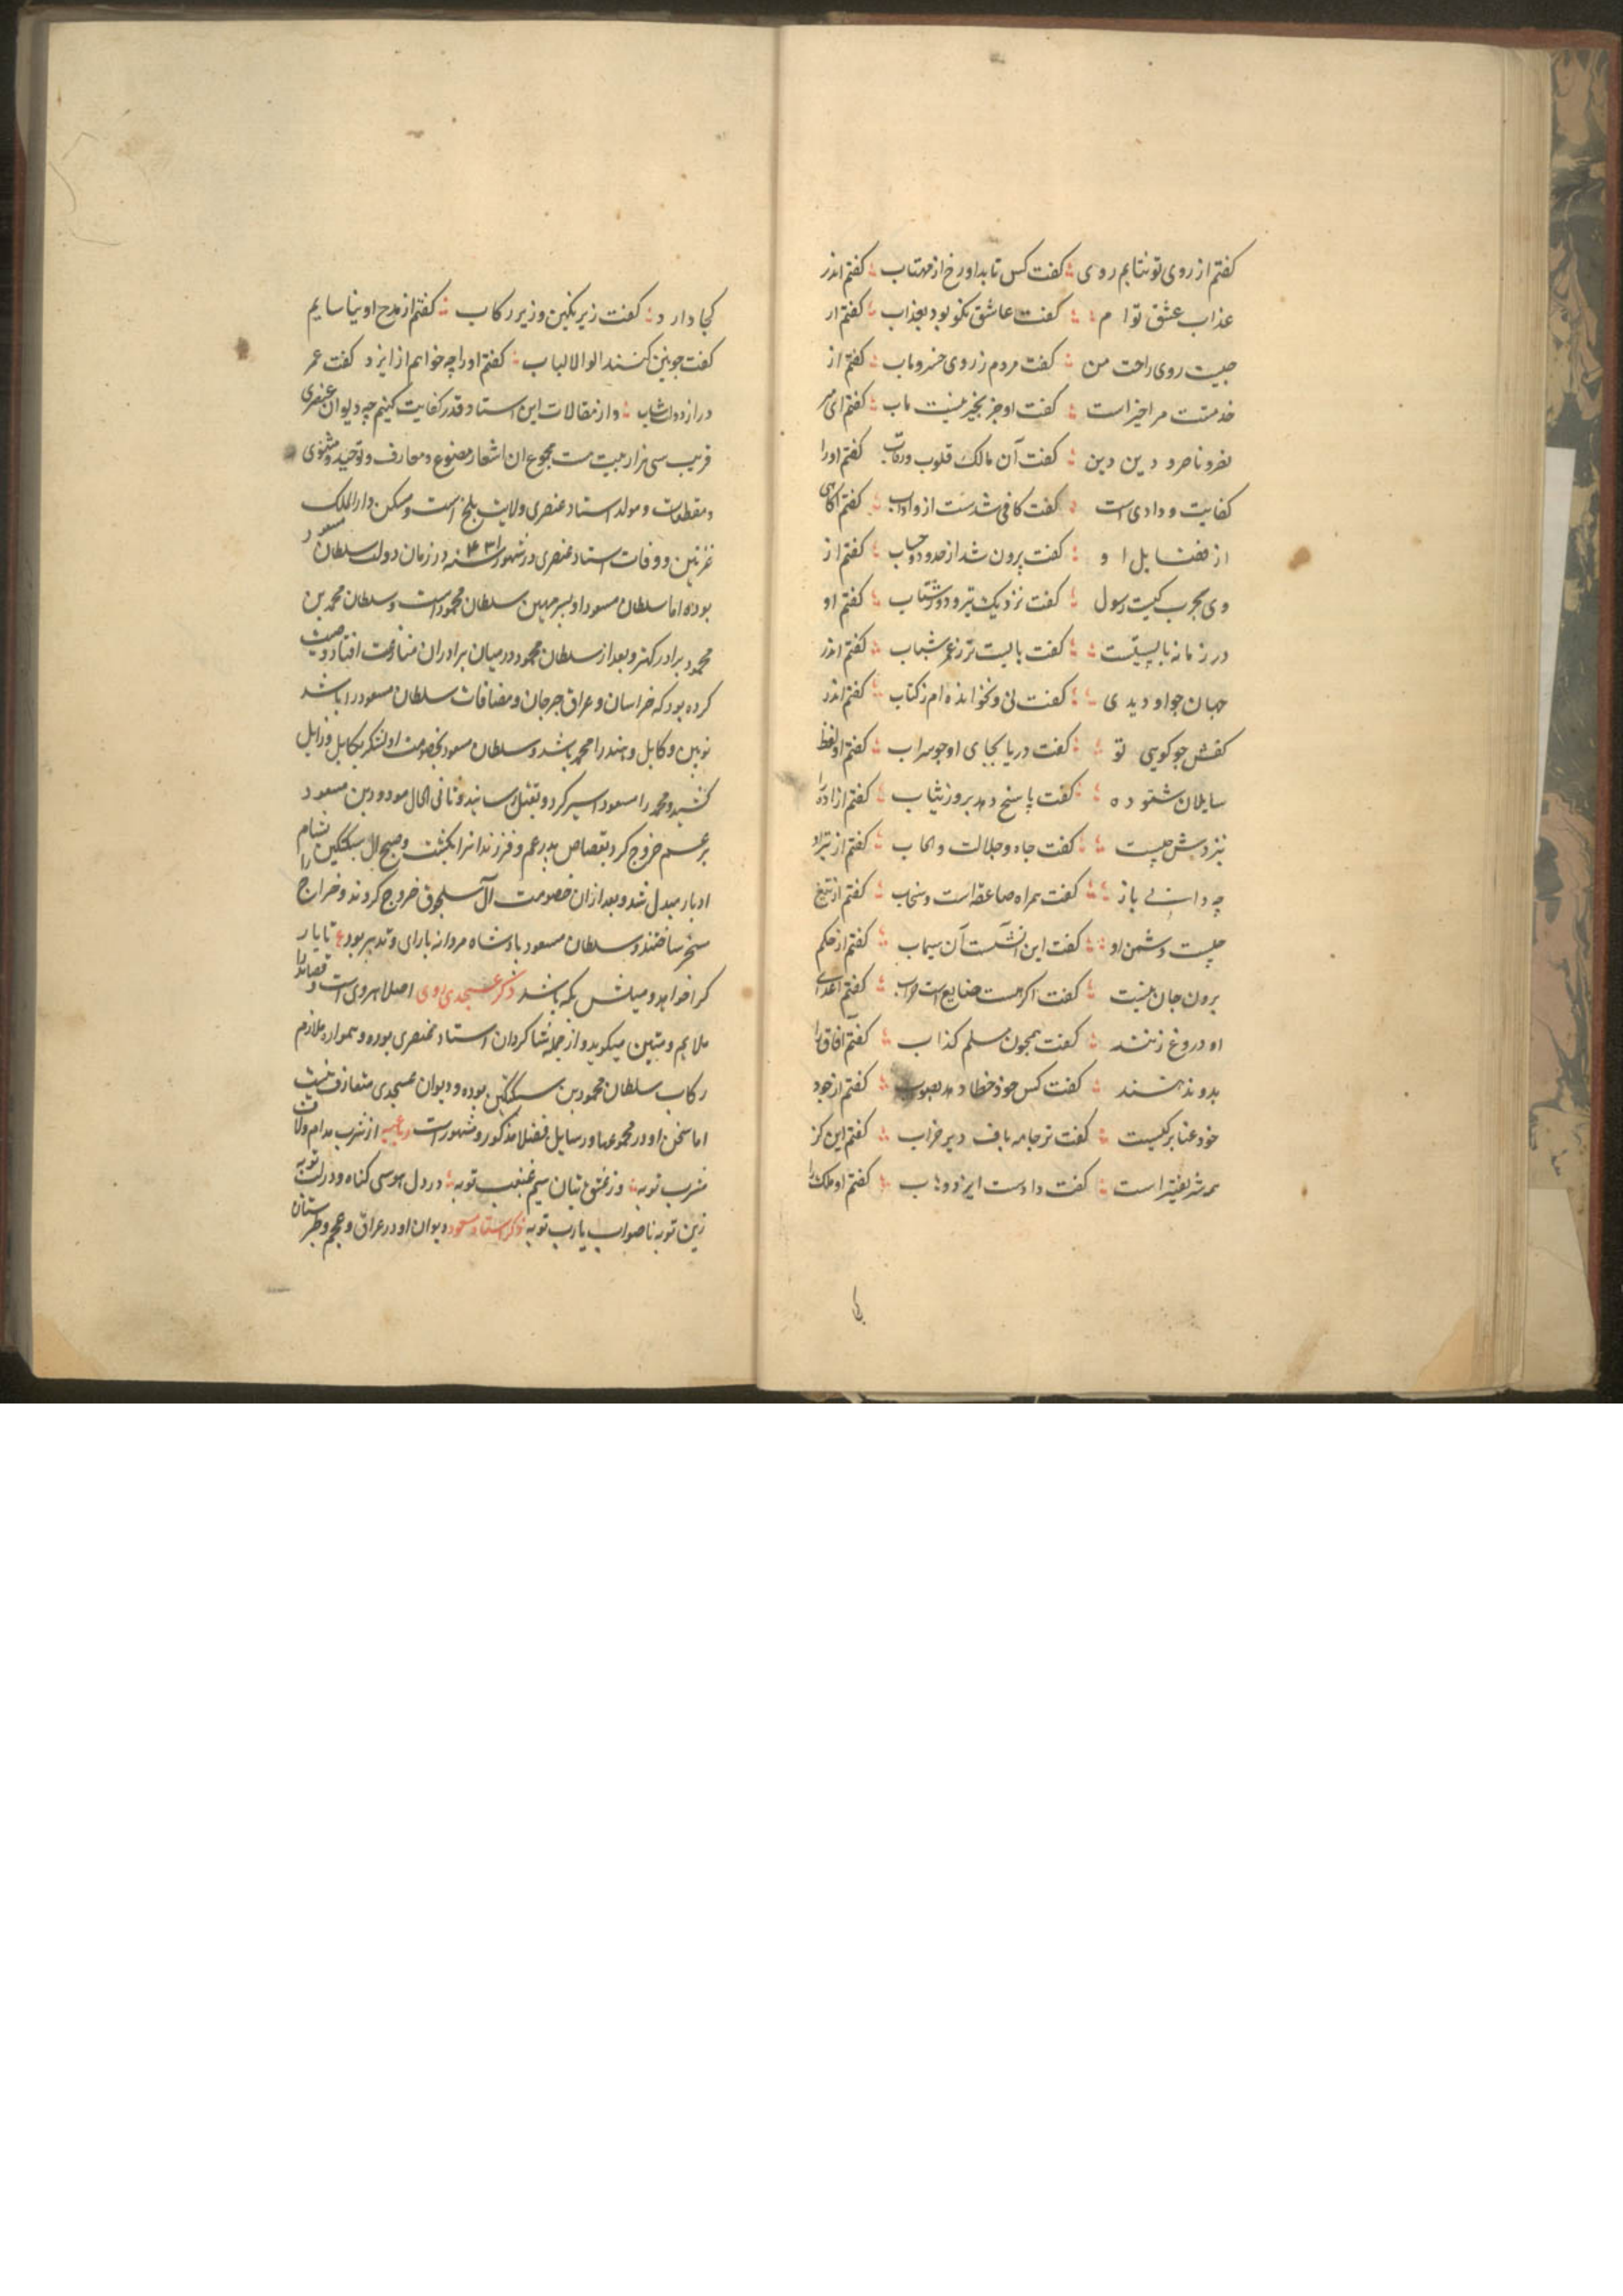 کفتم از روی تو نتابم روی کفت کس تابد او رخ از مهتاب کفتم اندر
عذاب عشق توا م کفت عاشق نکو بود بعذاب کفتم ار
چیست روی راحت من کفت مردم ز روی خسرو ماب کفتم از
خدمتت مرا خیر است کفت او جز بخیر نیست ماب کفتم ای میر
نصر و ناصر و دین دین کفت آن مالک قلوب و رقاب کفتم اورا
کفایت و دادی است کفت کافی شدست از و اداب کفتم اکاهی
از فضایل ا و کفت برون شد از حدود و حساب کفتم از
وی بحرب کیست رسول کفت نزدیک تیر و دور شتاب کفتم او
در زمانه بایستیست کفت بایست تر ز عمر شباب کفتم اندر
جهان جو او دیدی کفت نی و نخوانده ام ز کتاب کفتم اندر
کفش جو کویی تو کفت دریا بجای او جو سراب کفتم او لفظ
سایلان شنوده کفت پاسخ دهد بروز ثیاب کفتم ازاده را
نزدش چیست کفت جاه و جلالت و ایجاب کفتم از تیر او
چه دانی باز کفت همراه صاعقه است و سحاب کفتم از تیغ
چیست و دشمن او کفت این اتشست آن سیماب کفتم از حکم
برون جان نیست کفت اکر هست ضایع است و خراب کفتم اعدای
او دروغ زنند کفت همجون مسلم کذاب کفتم آفاق را
بدو ندهند کفت کس خود خطا دهد بصواب کفتم از جود
خود عنا بر کیست کفت بر جامه باف و بر ضراب کفتم این کز
همه شریفتر است کفت دادست ایزد وهاب کفتم او ملک را
کجا دارد کفت زیر نکین و زیر رکاب کفتم از مدح او نیاسایم
کفت جونین کنند اولوا الالباب کفتم او را چه خواهم از ایزد کفت عمر
دراز و دولت شاب و از مقالات این استاد قدر کفایت کنیم چه دیوان عنصری
قریب سی هزار بیت ست مجموع ان اشعار مصنوع و معارف و توحید و مثنوی
و مقطعات و مولد استاد عنصری ولایت بلخ است و مسکن دار الملک
غزنین و وفات استاد عنصری در شهور سنه ۴۳۱ در زمان دولت سلطان مسعود
بوده اما سلطان مسعود او پسر مهین سلطان محمود است و سلطان محمد بن
محمود برادر کهتر و بعد از سلطان محمود در میان برادران منازعت افتاد و وصیت
کرده بود که خراسان و عراق و جرجان و مضافات سلطان مسعود را باشد
نوبین و کابل و هند را محمد باشد و سلطان مسعود بخصومت او لشکر بکابل و زابل
کشید و محمد را مسعود اسیر کرد و بقتل رسانید و ثانی الحال مودود بن مسعود
بر عم خروج کرد بقصاص پدر عم و فرزندانرا بکشت و صبح ال سبکتکین بشام
ادبار مبدل شد و بعد از ان خصومت آل سلجوق خروج کردند و خراج را
مسخر ساختند و سلطان مسعود پادشاه مردانه با رای و تدبیر بود ع تا یار
کرا خواهد و میلش بکه باشد ذکر عسجدی روی اصلا هروی است و قصاید را
ملایم و متین میکوید و از جمله شاکردان استاد عنصری بوده و همواره ملازم
رکاب سلطان محمود بن سبکتکین بوده و دیوان عسجدی متعارف نیست
اما سخن او در مجموعها و رسایل فضلا مذکور و مشهور است رباعیه از شرب مدام و لاف
مشرب توبه وز عشق بتان سیم غبغب توبه در دل هوسی کناه و در لب توبه
زین توبه ناصواب یا رب توبه ذکر استاد مسعود دیوان او در عراق و عجم و طبرستان